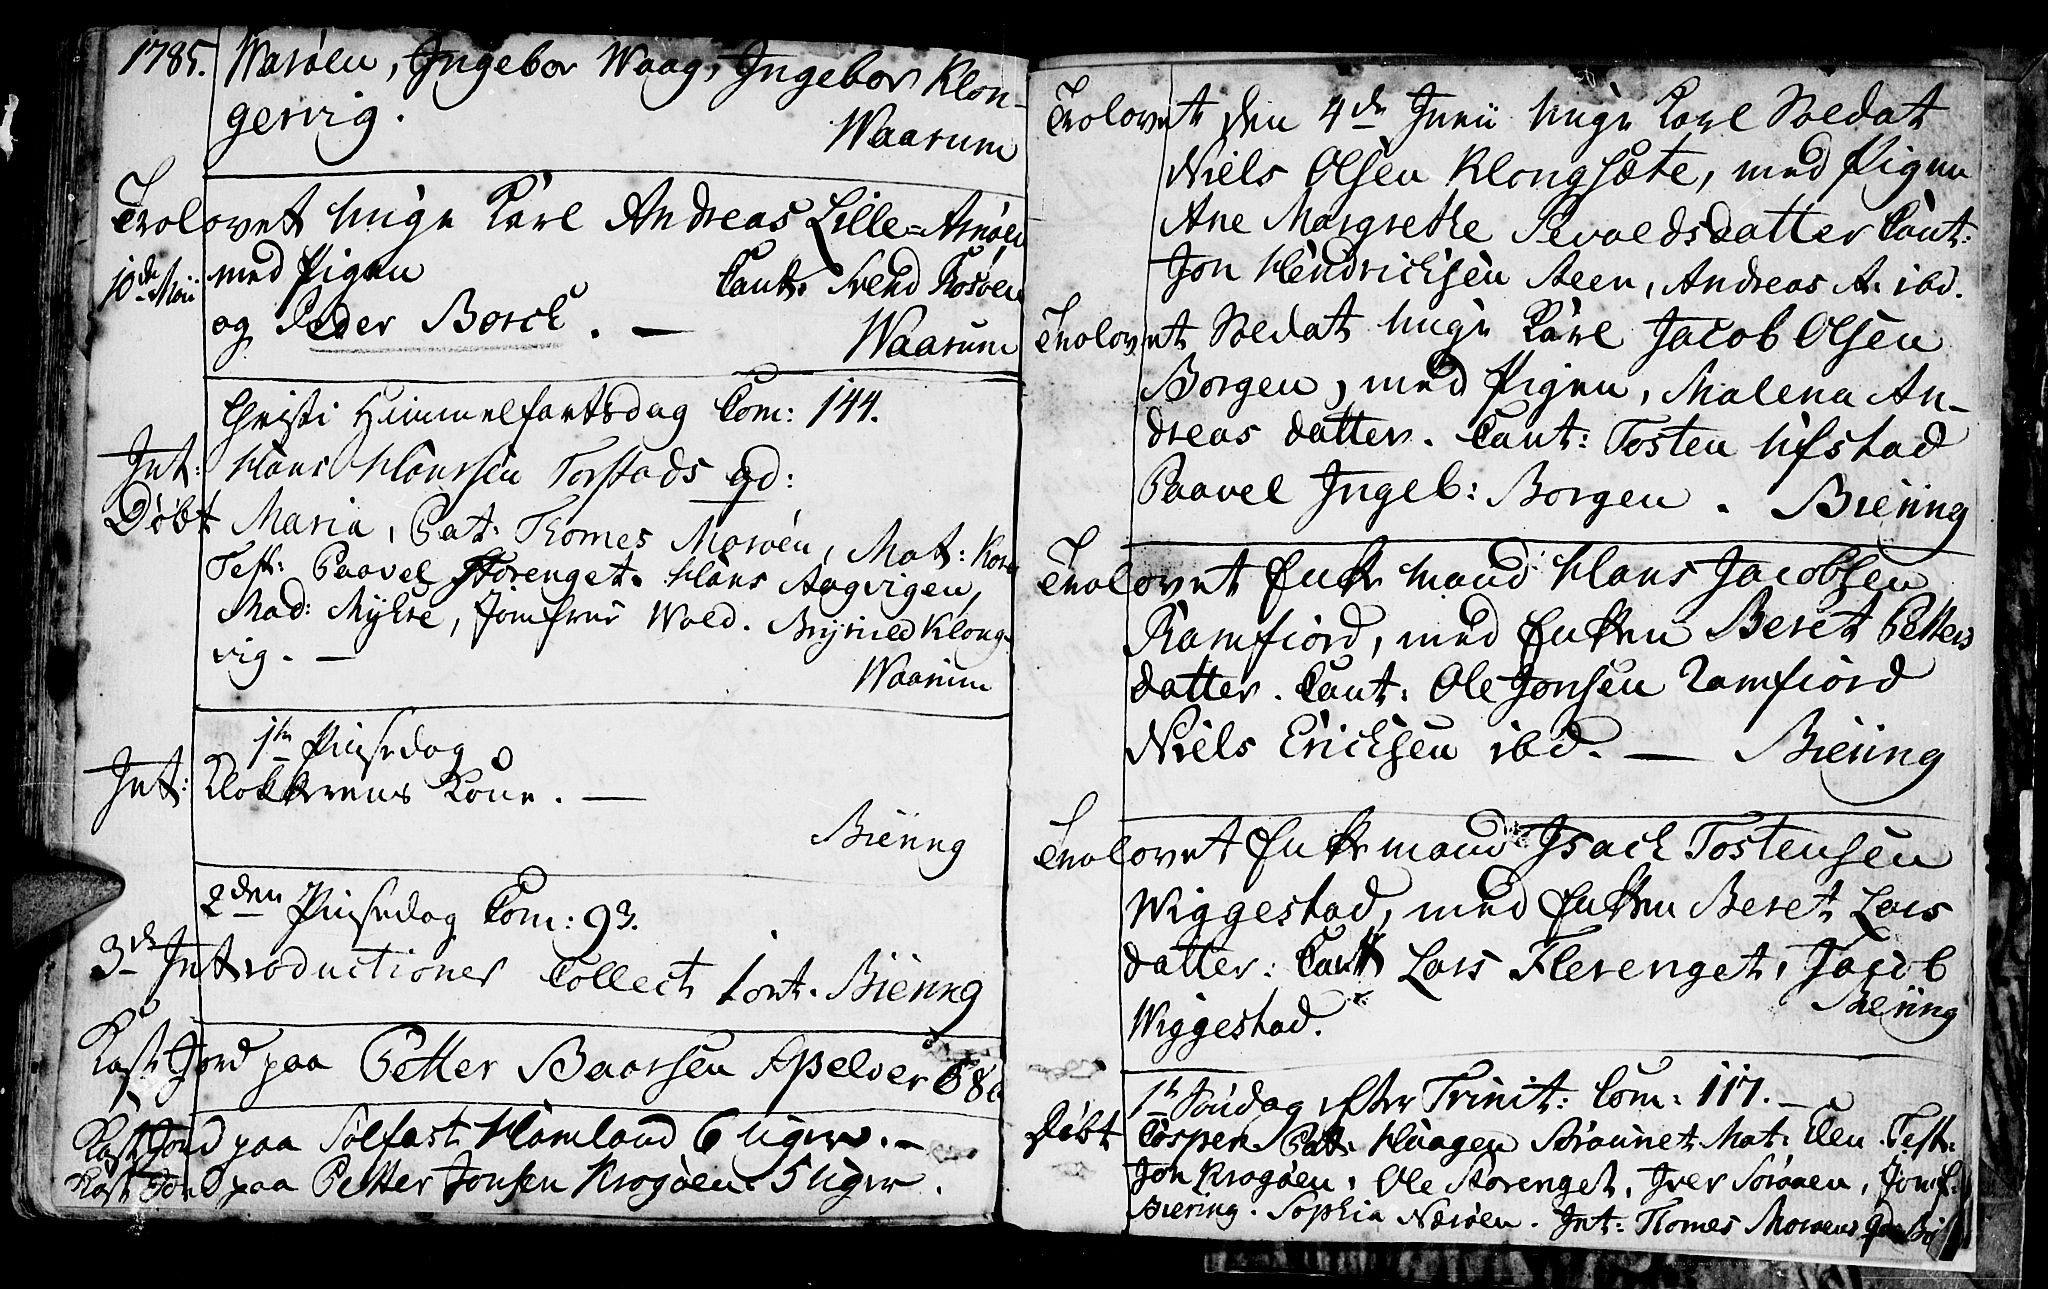 1785. Warøen, Ingebor Waag, Ingebor Klon-
gervig.
Waarum
Trolovet unge Karl Andreas Lille=Arnøen
10de Maii med Pigen Caut: Svend Rosøen
og Peder Borch. —
Waarum
Christi Himmelfartsdag Com: 144.
Int: Hans Hanssen Torstads qd:
Døbt Maria, Pat. Thomes Morøen, Mat: Karn
Test: Paavel Storenget. Hans Aagvigen,
Mad: Myhre, Jomfrue Wold. Brynild Klong-
vig. —
Waarum
1te Pinsedag
Int: Klokkerens Kone. —
Biering
2den Pinsedag Com: 93.
3de Introductioner Collect 1 ort. Biering
Kast Jord paa Petter Baarsen Apelvær
Kast Jord paa Solfast Hamland 6 uger. —
Kast Jord paa Petter Jonsen Krogøen 5 uger.
Trolovet den 4de Junii unge Karl Soldat
Niels Olsen Klongsæte, med Pigen
Ane Margrethe Sevoldsdatter Caut:
Jon Hendrichsen Aeen, Andreas A. ibd.
Trolovet Soldat unge Karl Jacob Olsen
Borgen, med Pigen, Malena An-
dreas datter. Caut: Tosten Ufstad
Paavel Ingeb: Borgen. Biering
Trolovet Enke Mand Hans Jacobsen
Ramfiord, med Enken Beret Petters
datter. Caut: Ole Jonsen Ramfiord
Niels Erichsen ibd. — Biering
Trolovet Enke mand Isach Tostensen
Wiggestad, med Enken Beret Lars
datter: Caut: Lars Flerenget, Jacob
Wiggestad. Biering
1te Søndag efter Trinit: Com: 117. —
Døbt Casper Patt: Haagen Braunet Mat: Elen Test:
Jon Krogøen, Ole Storenget, Iver Sørøen, Jomf:
Biering. Sophia Nærøen. Int: Thomes Morøens